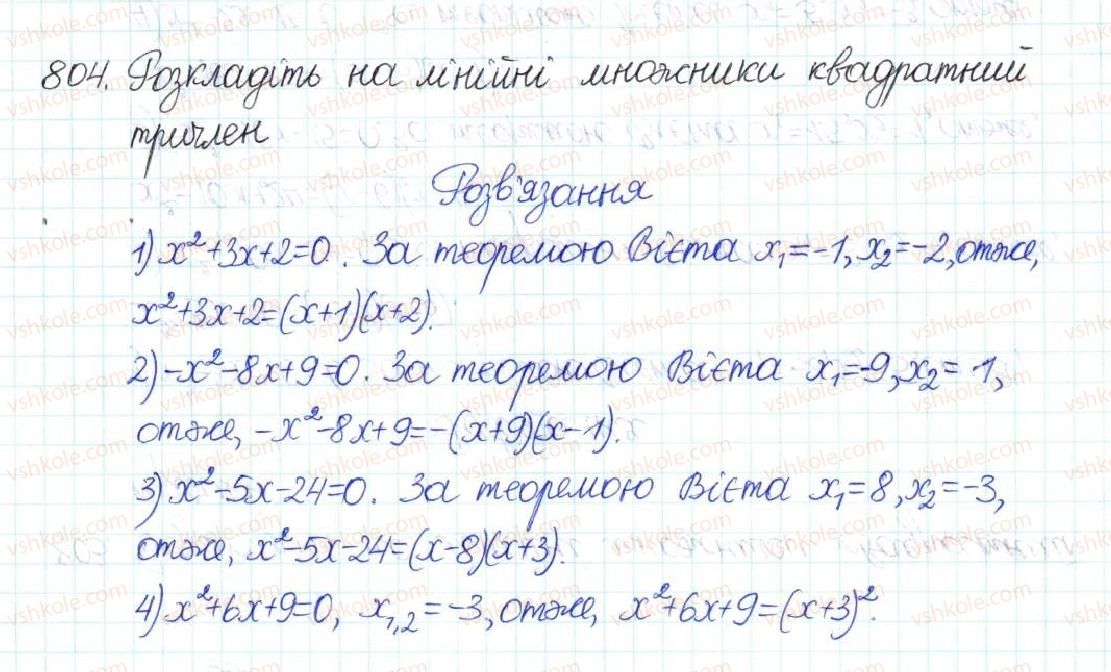 804. Розкладіть на лінійні множники квадратний
тричлен
Розв'язання
1) x²+3x+2=0. За теоремою Вієта x₁=-1, x₂=-2, отже,
x²+3x+2=(x+1)(x+2).
2) -x²-8x+9=0. За теоремою Вієта x₁=-9, x₂= 1,
отже, -x²-8x+9=-(x+9)(x-1).
3) x²-5x-24=0. За теоремою Вієта x₁=8, x₂=-3,
отже, x²-5x-24=(x-8)(x+3).
4) x²+6x+9=0, x₁,₂=-3, отже, x²+6x+9=(x+3)².